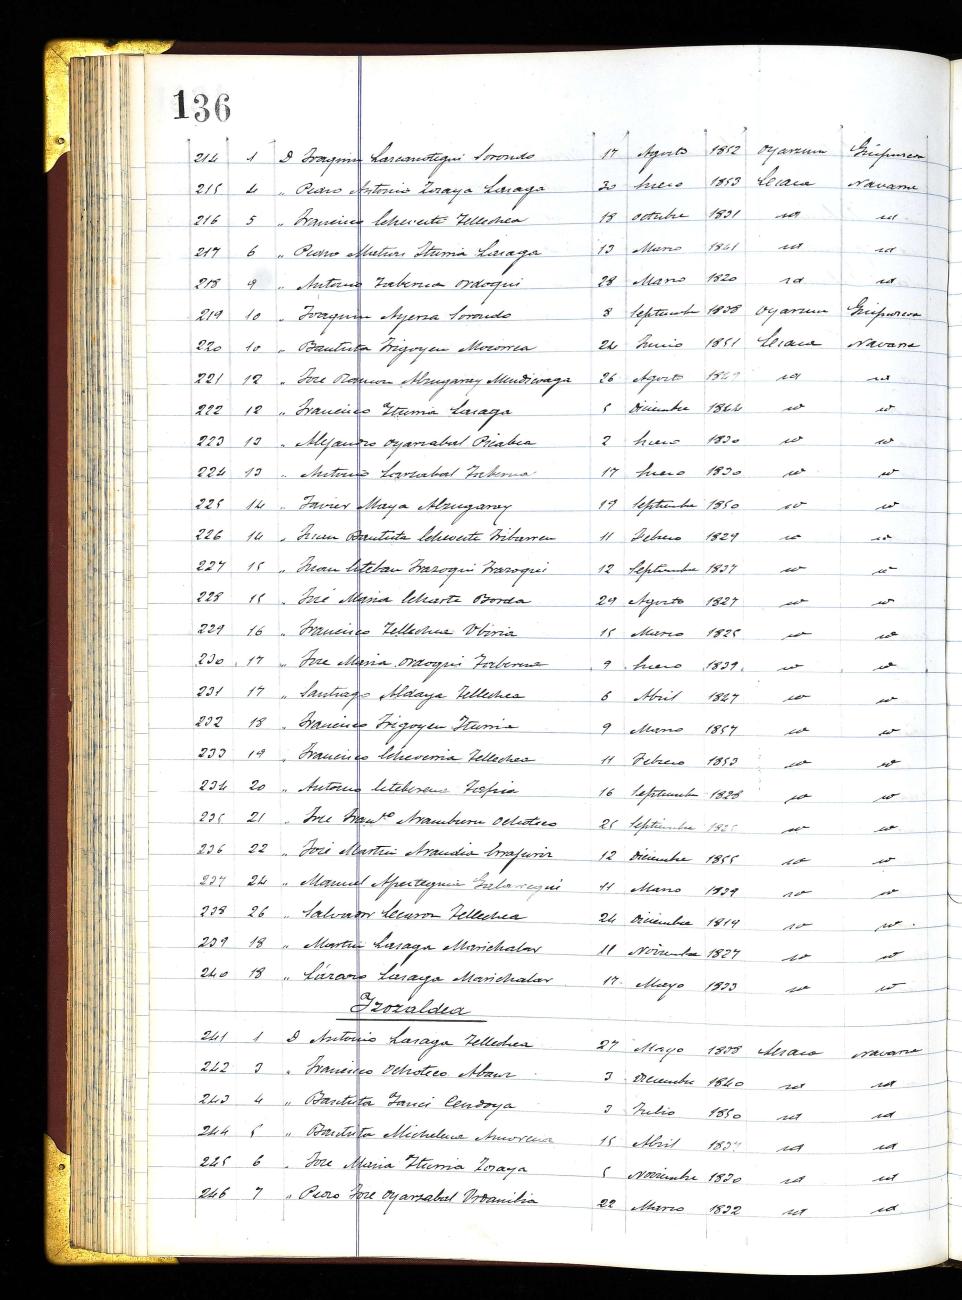 136
214 1 D Joaquin Lascanotegui Sorondo 17 Agosto 1852 Oyarzun Guipuzcoa
215 4 " Pedro Antonio Zoraya Lasaga 30 Enero 1853 Lesaca Navarra
216 5 " Francisco Echeveste Tellechea 18 Octubre 1831 id id
217 6 " Pedro Matias Iturria Lasaga 13 Marzo 1841 id id
218 9 " Antonio Taberna Ordoqui 28 Marzo 1820 id id
219 10 " Joaquin Ayerza Sorondo 8 Septiembre 1838 Oyarzun Guipuzcoa
220 10 " Bautista Irigoyen Mocorrea 24 Junio 1851 Lesaca Navarra
221 12 " Jose Ramon Alzugaray Mendizaga 26 Agosto 1849 id id
222 12 " Francisco Iturria Lasaga 5 Diciembre 1844 id id
223 13 " Alejandro Oyarzabal Picabea 2 Enero 1830 id id
224 13 " Antonio Loyarzabal Taberna 17 Enero 1830 id id
225 14 " Javier Maya Alzugaray 19 Septiembre 1850 id id
226 14 " Juan Bautista Echeveste Iribarren 11 Febrero 1829 id id
227 15 " Juan Esteban Irazoqui Irazoqui 12 Septiembre 1837 id id
228 15 " José Maria Echarte Borda 29 Agosto 1827 id id
229 16 " Francisco Tellechea Ubiria 15 Marzo 1825 id id
230 17 " Jose Maria Ordoqui Taberna 9 Enero 1839 id id
231 17 " Santiago Aldaya Tellechea 6 Abril 1827 id id
232 18 " Francisco Irigoyen Iturria 9 Marzo 1857 id id
233 19 " Francisco Echeverria Tellechea 11 Febrero 1853 id id
234 20 " Antonio Esteberena Tapia 16 Septiembre 1828 id id
235 21 " Jose Franco Aramburu Ochoteco 25 Septiembre id id
236 22 " José Martin Arandia 12 Diciembre 1855 id id
237 24 " Manuel Apesteguia Galarregui 11 Marzo 1839 id id
238 26 " Salvador Lecaroz Tellechea 24 Diciembre 1819 id id
239 18 " Martin Lasaga Marichalar 11 Noviembre 1827 id id
240 18 " Lázaro Lasaga Marichalar 17 Mayo 1833 id id
Zozaldea
241 1 D Antonio Lasaga Tellechea 27 Mayo 1838 Lesaca Navarra
242 3 " Francisco Ochoteco Abaur 3 Diciembre 1840 id id
243 4 " Bautista Yanci Cendoya 3 Julio 1850 id id
244 5 " Bautista Michelena Amorena 15 Abril 1837 id id
245 6 " Jose Maria Iturria Zoraya 5 Noviembre 1830 id id
246 7 " Pedro Jose Oyarzabal Urdanibia 22 Marzo 1832 id id